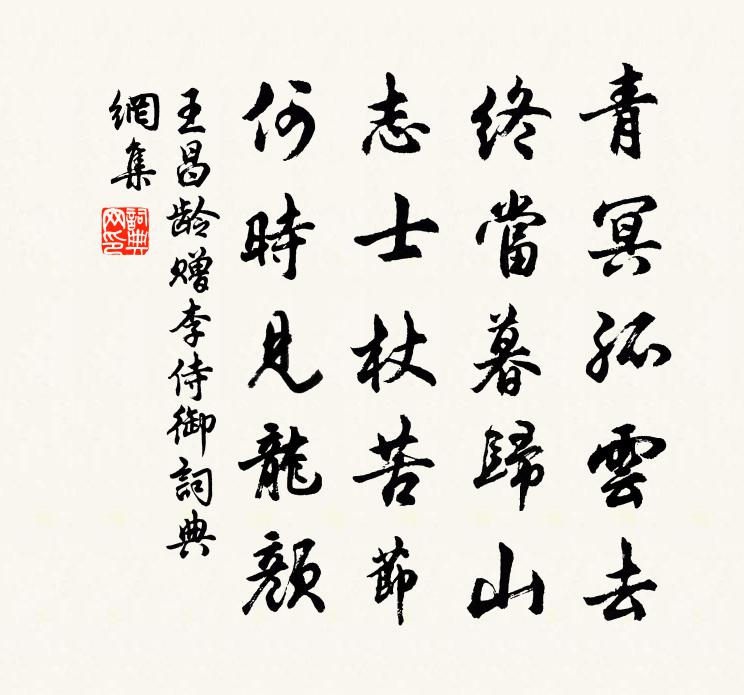 青冥孤雲去
終當暮歸山
志士杖苦節
何時見龍顏
王昌龄贈李侍御詞典
網集
詞典
网印